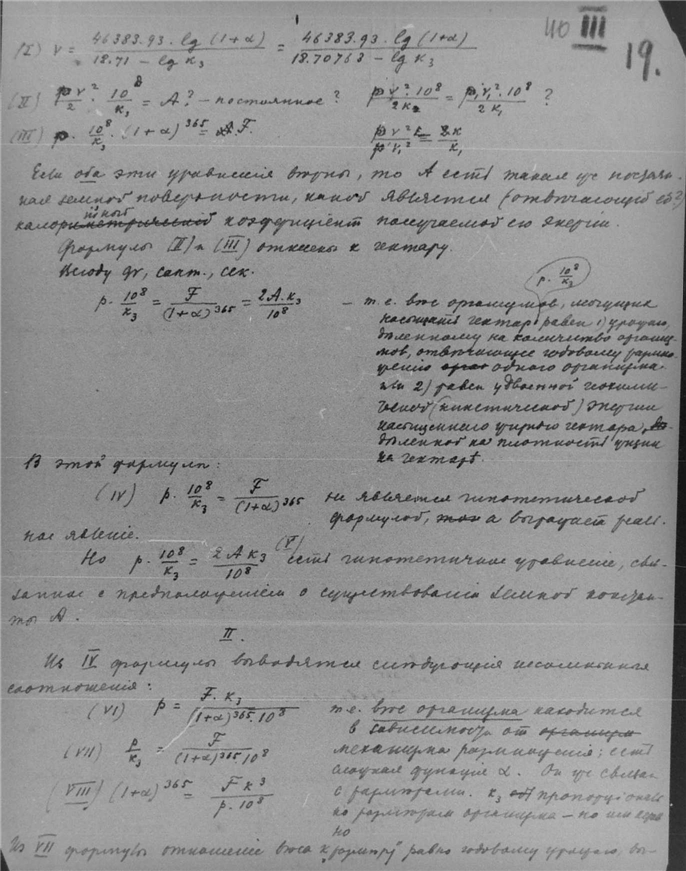 40 III
19.
(I) v = 46383.93 . lg (1+α) / 18.71 – lg κ₃ = 46383.93 . lg (1+α) / 18.70762 – lg κ₃
(II) pv²/2 . 10⁸/κ₃ = A? – постоянное? pv² . 10⁸/2κ = p'v₁² . 10⁸/2κ₁ ?
(III) p . 10⁸/κ₃ . (1+α)³⁶⁵ = F. pv²/p'v₁² = κ/κ₁
Если оба эти уравнения верны, то A есть такая же
ная земной поверхности, какой является (отвечающий ей?)
кал коэфициент получаемой ею энергии.
Формулы (II) и (III) отнесены к гектару.
Всюду gr, сант., сек.
p . 10⁸/κ₃ = F/(1+α)³⁶⁵ = 2A.κ₃/10⁸ – т.е. вес организмов, могущих p . 10⁸/κ₃
насыщать гектар равен 1) урожаю,
деленному на количество организ-
мов, отвечающее годовому размно-
жению одного организма
или 2) равен удвоенной геохими-
ческой (кинетической) энергии
насыщенного гектара,
деленной на плотность жизни
на гектаре.
В этой формуле:
(IV) p . 10⁸/κ₃ = F/(1+α)³⁶⁵ не является гипотетической
формулой, а выражает реаль-
ное явление.
Но p . 10⁸/κ₃ = 2Aκ₃/10⁸ (V) есть гипотетичное уравнение, свя-
занное с предположением о существовании земной констан-
ты A.
II.
Из IV формулы выводятся следующия несомненныя
соотношения:
(VI) p = F.κ₃/(1+α)³⁶⁵.10⁸ т.е. вес организма находится
в зависимости от
(VII) p/κ₃ = F/(1+α)³⁶⁵10⁸ механизма размножения; есть
функция α. Он же связан
(VIII) (1+α)³⁶⁵ = Fκ₃/p.10⁸ с размерами. κ₃ пропорционал
но размерам организма – но не
но
Из VII формулы отношение веса к размеру равно годовому урожаю,